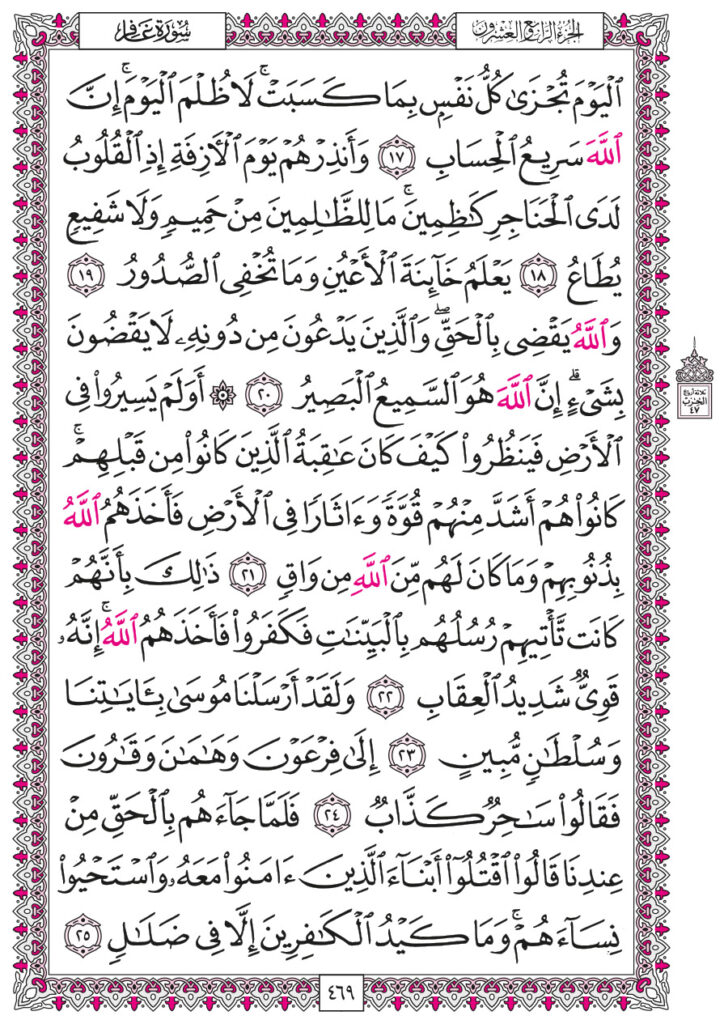 سُورَةُ غَافِرٍ
الجُزْءُ الرَّابِعُ وَالعِشْرُونَ
ٱلۡيَوۡمَ تُجۡزَىٰ كُلُّ نَفۡسِۭ بِمَا كَسَبَتۡۚ لَا ظُلۡمَ ٱلۡيَوۡمَۚ إِنَّ
ٱللَّهَ سَرِيعُ ٱلۡحِسَابِ ١٧ وَأَنذِرۡهُمۡ يَوۡمَ ٱلۡأٓزِفَةِ إِذِ ٱلۡقُلُوبُ
لَدَى ٱلۡحَنَاجِرِ كَٰظِمِينَۚ مَا لِلظَّٰلِمِينَ مِنۡ حَمِيمٖ وَلَا شَفِيعٖ
يُطَاعُ ١٨ يَعۡلَمُ خَآئِنَةَ ٱلۡأَعۡيُنِ وَمَا تُخۡفِي ٱلصُّدُورُ ١٩
وَٱللَّهُ يَقۡضِي بِٱلۡحَقِّۖ وَٱلَّذِينَ يَدۡعُونَ مِن دُونِهِۦ لَا يَقۡضُونَ
بِشَيۡءٍۗ إِنَّ ٱللَّهَ هُوَ ٱلسَّمِيعُ ٱلۡبَصِيرُ ٢٠ ۞ أَوَلَمۡ يَسِيرُواْ فِي
ٱلۡأَرۡضِ فَيَنظُرُواْ كَيۡفَ كَانَ عَٰقِبَةُ ٱلَّذِينَ كَانُواْ مِن قَبۡلِهِمۡۚ
كَانُواْ هُمۡ أَشَدَّ مِنۡهُمۡ قُوَّةٗ وَءَاثَارٗا فِي ٱلۡأَرۡضِ فَأَخَذَهُمُ ٱللَّهُ
بِذُنُوبِهِمۡ وَمَا كَانَ لَهُم مِّنَ ٱللَّهِ مِن وَاقٖ ٢١ ذَٰلِكَ بِأَنَّهُمۡ
كَانَت تَّأۡتِيهِمۡ رُسُلُهُم بِٱلۡبَيِّنَٰتِ فَكَفَرُواْ فَأَخَذَهُمُ ٱللَّهُۚ إِنَّهُۥ
قَوِيّٞ شَدِيدُ ٱلۡعِقَابِ ٢٢ وَلَقَدۡ أَرۡسَلۡنَا مُوسَىٰ بِـَٔايَٰتِنَا
وَسُلۡطَٰنٖ مُّبِينٍ ٢٣ إِلَىٰ فِرۡعَوۡنَ وَهَٰمَٰنَ وَقَٰرُونَ
فَقَالُواْ سَٰحِرٞ كَذَّابٞ ٢٤ فَلَمَّا جَآءَهُم بِٱلۡحَقِّ مِنۡ
عِندِنَا قَالُواْ ٱقۡتُلُوٓاْ أَبۡنَآءَ ٱلَّذِينَ ءَامَنُواْ مَعَهُۥ وَٱسۡتَحۡيُواْ
نِسَآءَهُمۡۚ وَمَا كَيۡدُ ٱلۡكَٰفِرِينَ إِلَّا فِي ضَلَٰلٖ ٢٥
٤٦٩
ثلاثة أرباع
الحزب
٤٧